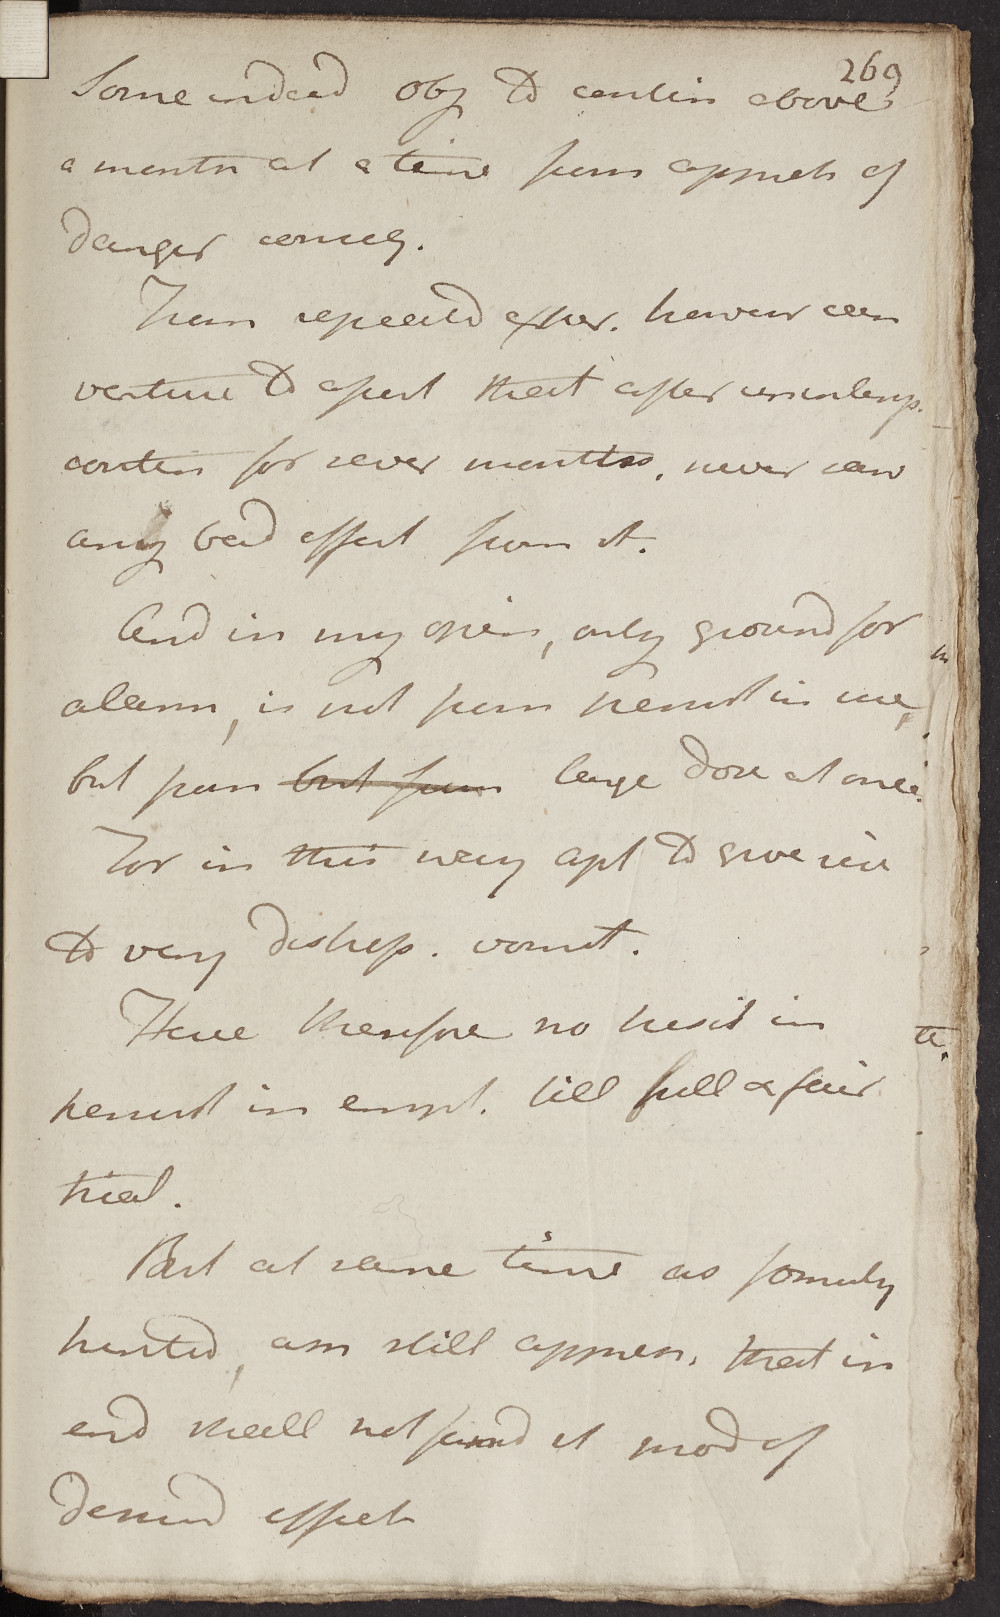 269
Some indeed obj to contin above
a month at a time from appreh of
danger conseq.
From repeated exper. however can
venture to assert that after uninterrup.
contin for sever months, never saw
any bad effect from it.
And in my opin, only ground for
alarm, is not from persist in use,
but from but from large dose at once.
For in this way apt to give rise
to very distress. vomit.
Have therefore no hesit in
persist in empl. till full & fair
trial.
But at same time as formerly
hinted, am still appreh. that in
end shall not find it prod of
desired effect